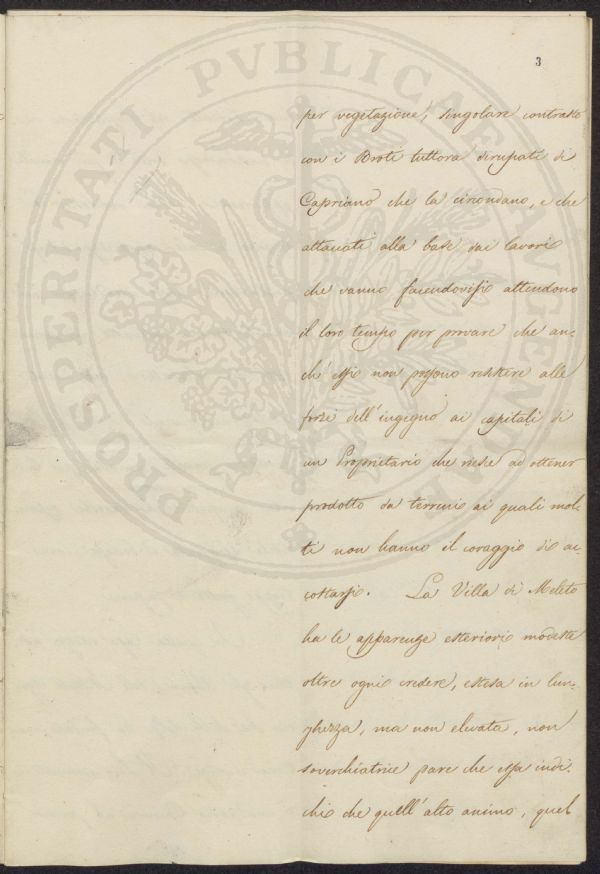 3
per vegetazione, singolare contrasto
con i Broti tuttora dirupati di
Capriano che la circondano, e che
attaccati alla base dai lavori
che vanno facendovisi attendono
il loro tempo per provare che an-
ch'essi non possono resistere alle
forze dell'ingegno ai capitali di
un Proprietario che riesce ad ottener
prodotto da terreni ai quali mol-
ti non hanno il coraggio di ac-
costarsi. La Villa di Meleto
ha le apparenze esteriori modeste
oltre ogni credere, estesa in lun-
ghezza, ma non elevata, non
soverchiatrice pare che essa indi-
chi che quell'alto animo, quel
PROSPERITATI PVBLICAE AVGENDAE